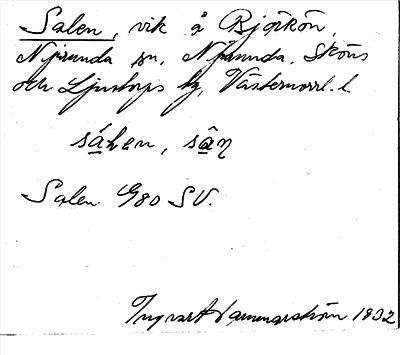 Salen, vik å Björkön,
Njurunda sn, Njurunda, Sköns
och Ljustorps tg, Västernorrl. l
sáḷen, sâŋ
Salen G80 SV.
Ingvar Hammarström 1932